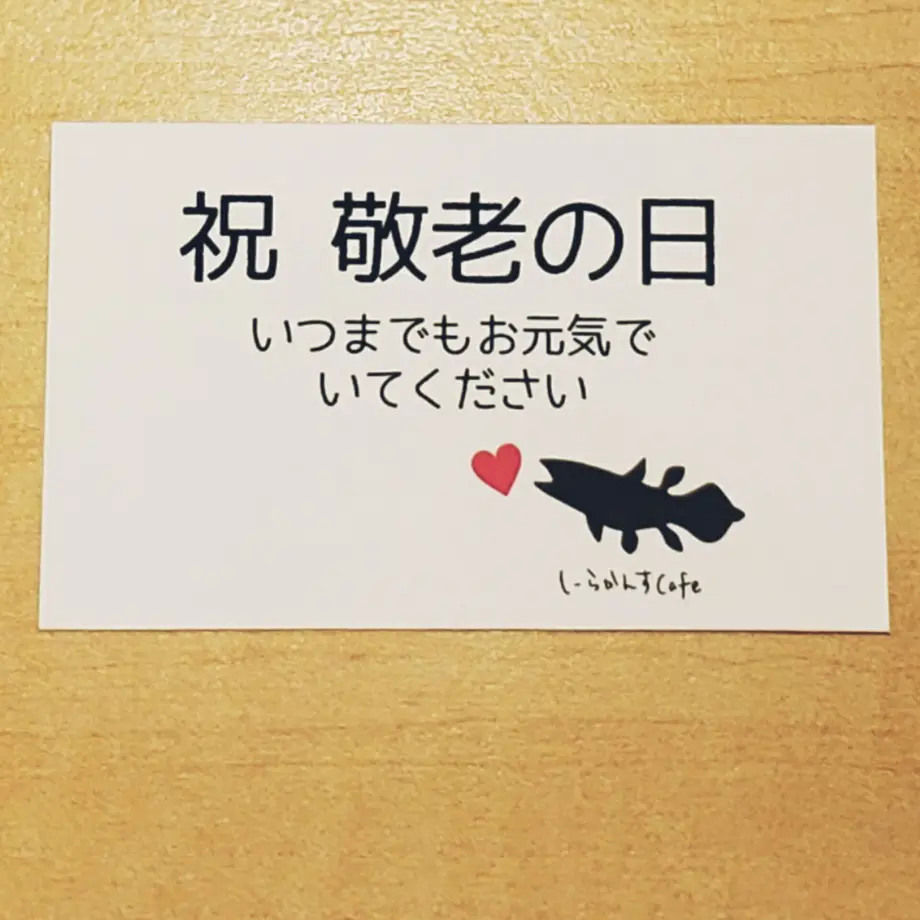 祝 敬老の日
いつまでもお元気で
いてください
しーらかんすCafe